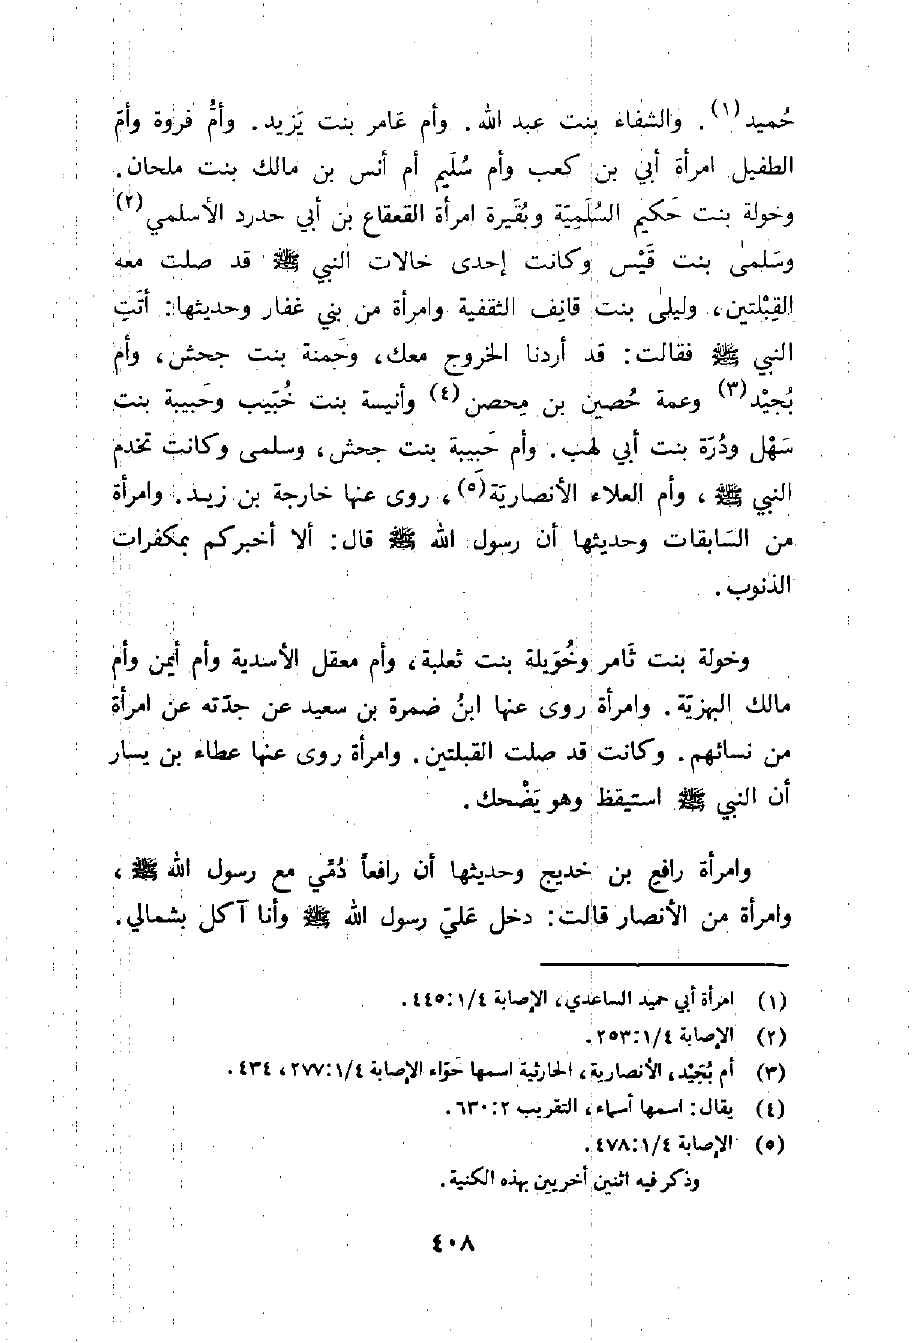 حُميد(١). والشفاء بنت عبد الله. وأم عَامر بنت يَزيد. وأمُّ فروة وأمّ
الطفيل امرأة أبي بن كعب وأم سُلَيم أم أنس بن مالك بنت ملحان.
وخولة بنت حَكيم السُلَمِيّة وبُقَيرة امرأة القعقاع بن أبي حدرد الأسلمي(٢)
وسَلمىٰ بنت قَيْس وكانت إحدى خالات النبي ﷺ قد صلت معه
القِبْلتين، وليلىٰ بنت قانِف الثقفية وامرأة من بني غفار وحديثها: أتَتِ
النبي ﷺ فقالت: قد أردنا الخروج معك، وحَمنة بنت جحش، وأم
بُجيْد(٣) وعمة حُصين بن مِحصن(٤) وأنيسة بنت خُبَيب وحَبيبة بنت
سَهْل ودُرّة بنت أبي لهب. وأم حَبيبة بنت جحش، وسلمى وكانت تخدم
النبي ﷺ، وأم العلاء الأنصاريّة(٥)، روى عنها خارجة بن زيد. وامرأة
من السَابقات وحديثها أن رسول الله ﷺ قال: ألا أخبركم بمكفرات
الذنوب.
وخولة بنت ثَامر وخُوَيلة بنت ثعلبة، وأم معقل الأسدية وأم أيمن وأم
مالك البهزيّة. وامرأة روى عنها ابنُ ضمرة بن سعيد عن جدّته عن امرأة
من نسائهم. وكانت قد صلت القبلتين. وامرأة روى عنها عطاء بن يسار
أن النبي ﷺ استيقظ وهو يَضْحك.
وامرأة رافع بن خديج وحديثها أن رافعاً دُمّي مع رسول الله ﷺ،
وامرأة من الأنصار قالت: دخل عَليّ رسول الله ﷺ وأنا آكل بشمالي.
(١) امرأة أبي حميد الساعدي، الإصابة ٤٤٥:١/٤.
(٢) الإصابة ٢٥٣:١/٤.
(٣) أم بُجَيْد، الأنصارية، الحارثية اسمها حَوّاء الإصابة ٢٧٧:١/٤، ٤٣٤.
(٤) يقال: اسمها أسماء، التقريب ٦٣٠:٢.
(٥) الإصابة ٤٧٨:١/٤.
وذكر فيه اثنين أخريين بهذه الكنية.
٤٠٨